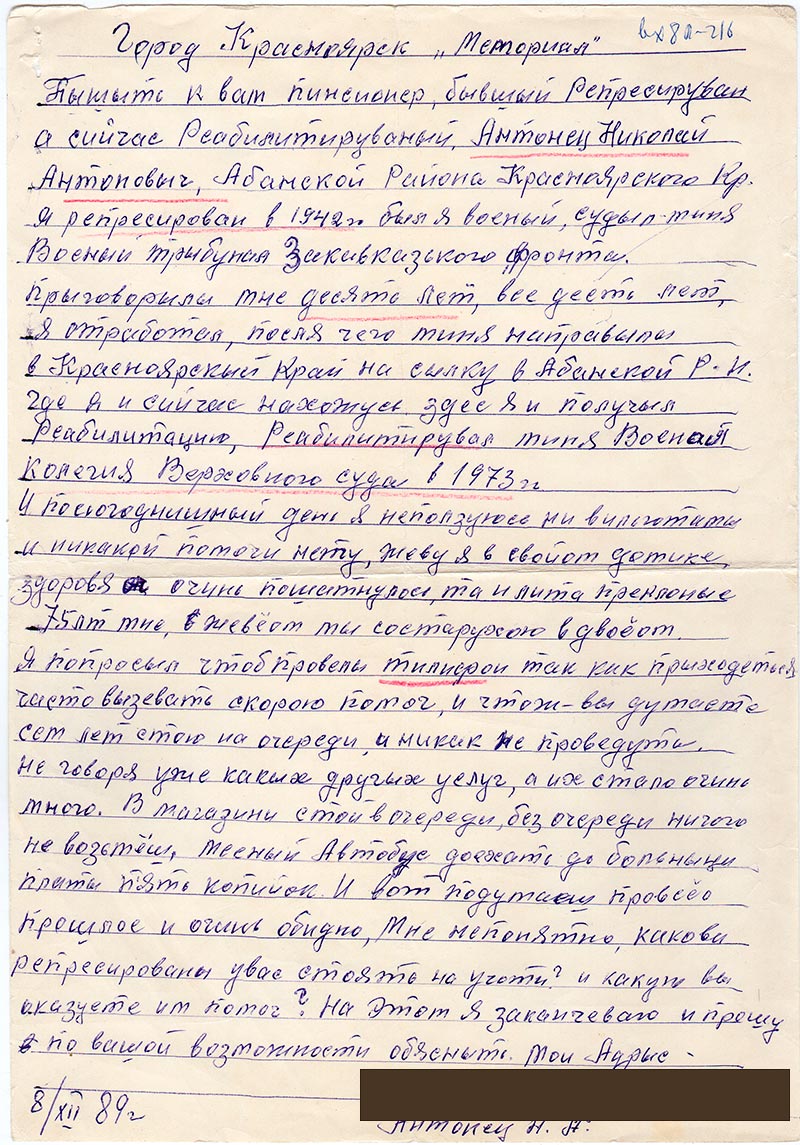 вх 8л-216
Город Красноярск „Мемориал“
Пышыть к вам пинсионер, бывшый Репресируван
а сийчас Реабилитируваный. Антонец Николай
Антоновыч, Абанской Района Красноярского Кр.
я репресирован в 1942г. был я военый, судыл миня
Военый трыбунал Закавказького фронта.
прыговорылы мне десять лет, все десть лет,
я отработал, посля чего миня направылы
в Красноярскый Край на сылку в Абанской Р-Н.
где я и сийчас нахожусь. здес я и получыл
Реабилитацию, Реабилитирувал миня Военая
Колегия Верховного суда в 1973 г.
И посюгоднишный день я непользуюсь ни вильготамы
и никакой помочи нету, жеву я в своём домике
здоровя очинь пошатнулось, та и лита преклоные
75 лт мне, жевёом мы состарухою в двоёом.
Я попросыл чтоб провелы тилифон так как прыходеться
часто вызевать скорою помоч, и чтож-вы думаете
сем лет стою на очереди, и никак не проведуть.
не говоря уже какых другых услуг, а их стало очинь
много. В магазини стой в очереди, без очереди ничого
не возьмёш. Месный Автобус доехать до больныцы
платы пять копийок. И вот подумаеш провсёо
прошлое и очинь обидно, Мне непонятно, какова
репресированы увас стоять на учоти? и какую вы
оказуете им помоч? На этом я заканчеваю и прошу
по вашой возможности обяснить. Мои Адрыс -
8/XII 89г
Антонец Н. А.